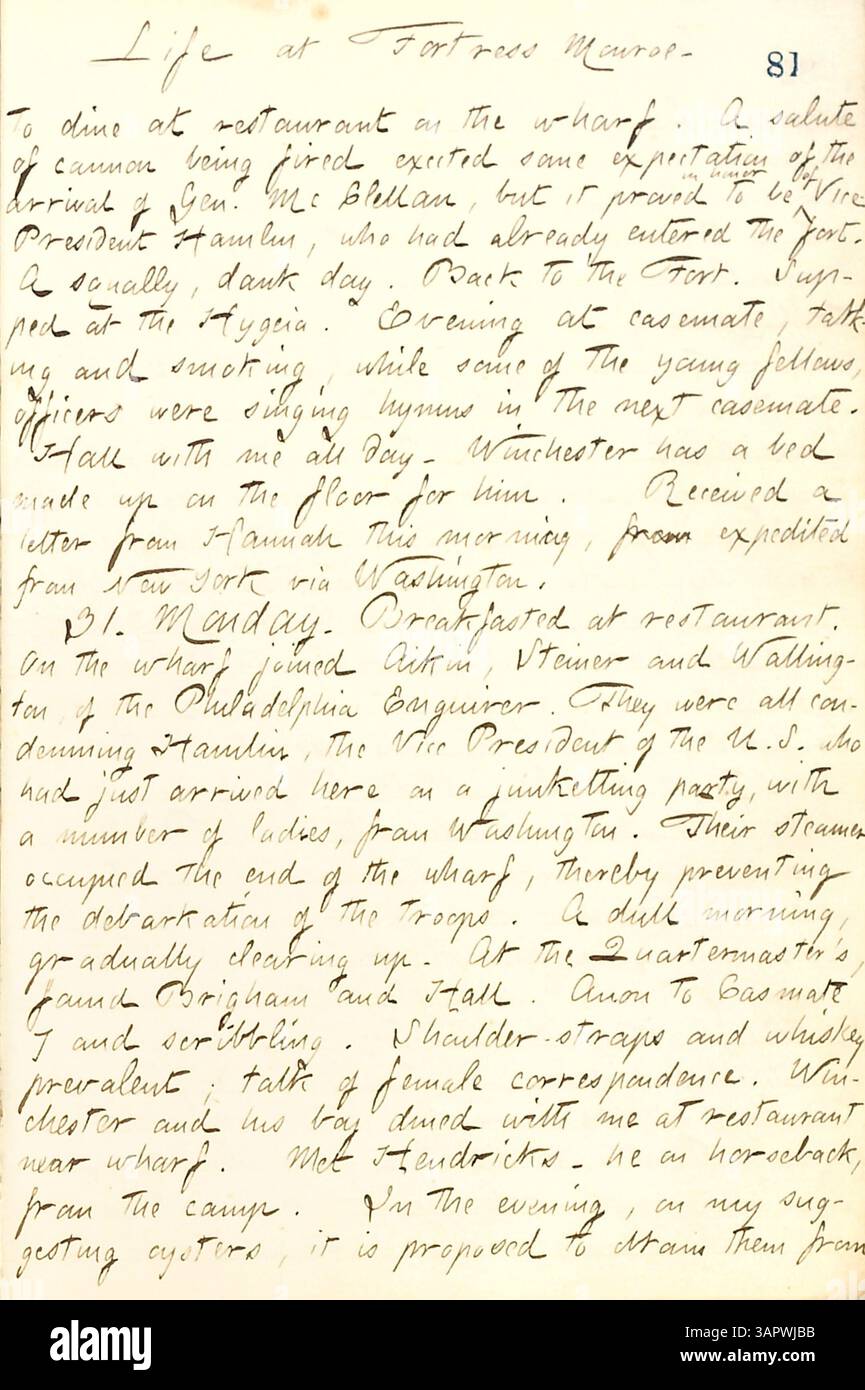 Life at Fortress Monroe-
81
to dine at restaurant on the wharf. A salute
of cannon being fired excited some expectation of the
in honor of
arrival of Gen. Mc Clellan, but it proved to be Vice
President Hamlin, who had already entered the fort.
A squally, dank day. Back to the Fort. Sup-
ped at the Hygeia. Evening at casemate, talk-
ing and smoking, while some of the young fellows,
officers were singing hymns in the next casemate.
Hall with me all day- Winchester has a bed
made up on the floor for him. Received a
letter from Hannah this morning, from expedited
from New York via Washington.
31. Monday. Breakfasted at restaurant.
On the wharf joined Aikin, Steiner and Walling-
ton, of the Philadelphia Enquirer. They were all con-
demning Hamlin, the Vice President of the U.S. who
had just arrived here on a junketting party, with
a number of ladies, from Washington. Their steamer
occupied the end of the wharf, thereby preventing
the debarkation of the troops. A dull morning,
gradually clearing up. At the Quartermaster's,
found Brigham and Hall. Anon to Casmate
7 and scribbling. Shoulder-straps and whiskey
prevalent; talk of female correspondence. Win-
chester and his boy dined with me at restaurant
near wharf. Met Hendricks- he on horseback,
from the camp. In the evening, on my sug-
gesting oysters, it is proposed to obtain them from
alamy
Image ID: 3APWJBB
www.alamy.com